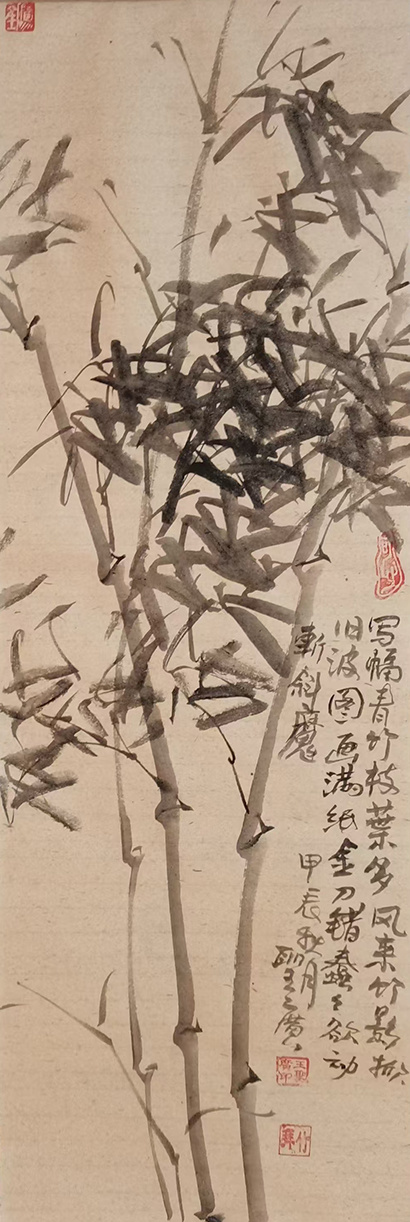 写幅青竹枝叶多风来竹影
旧波图画满纸金刀错蠢々欲动
斩斜魔
甲辰秋月